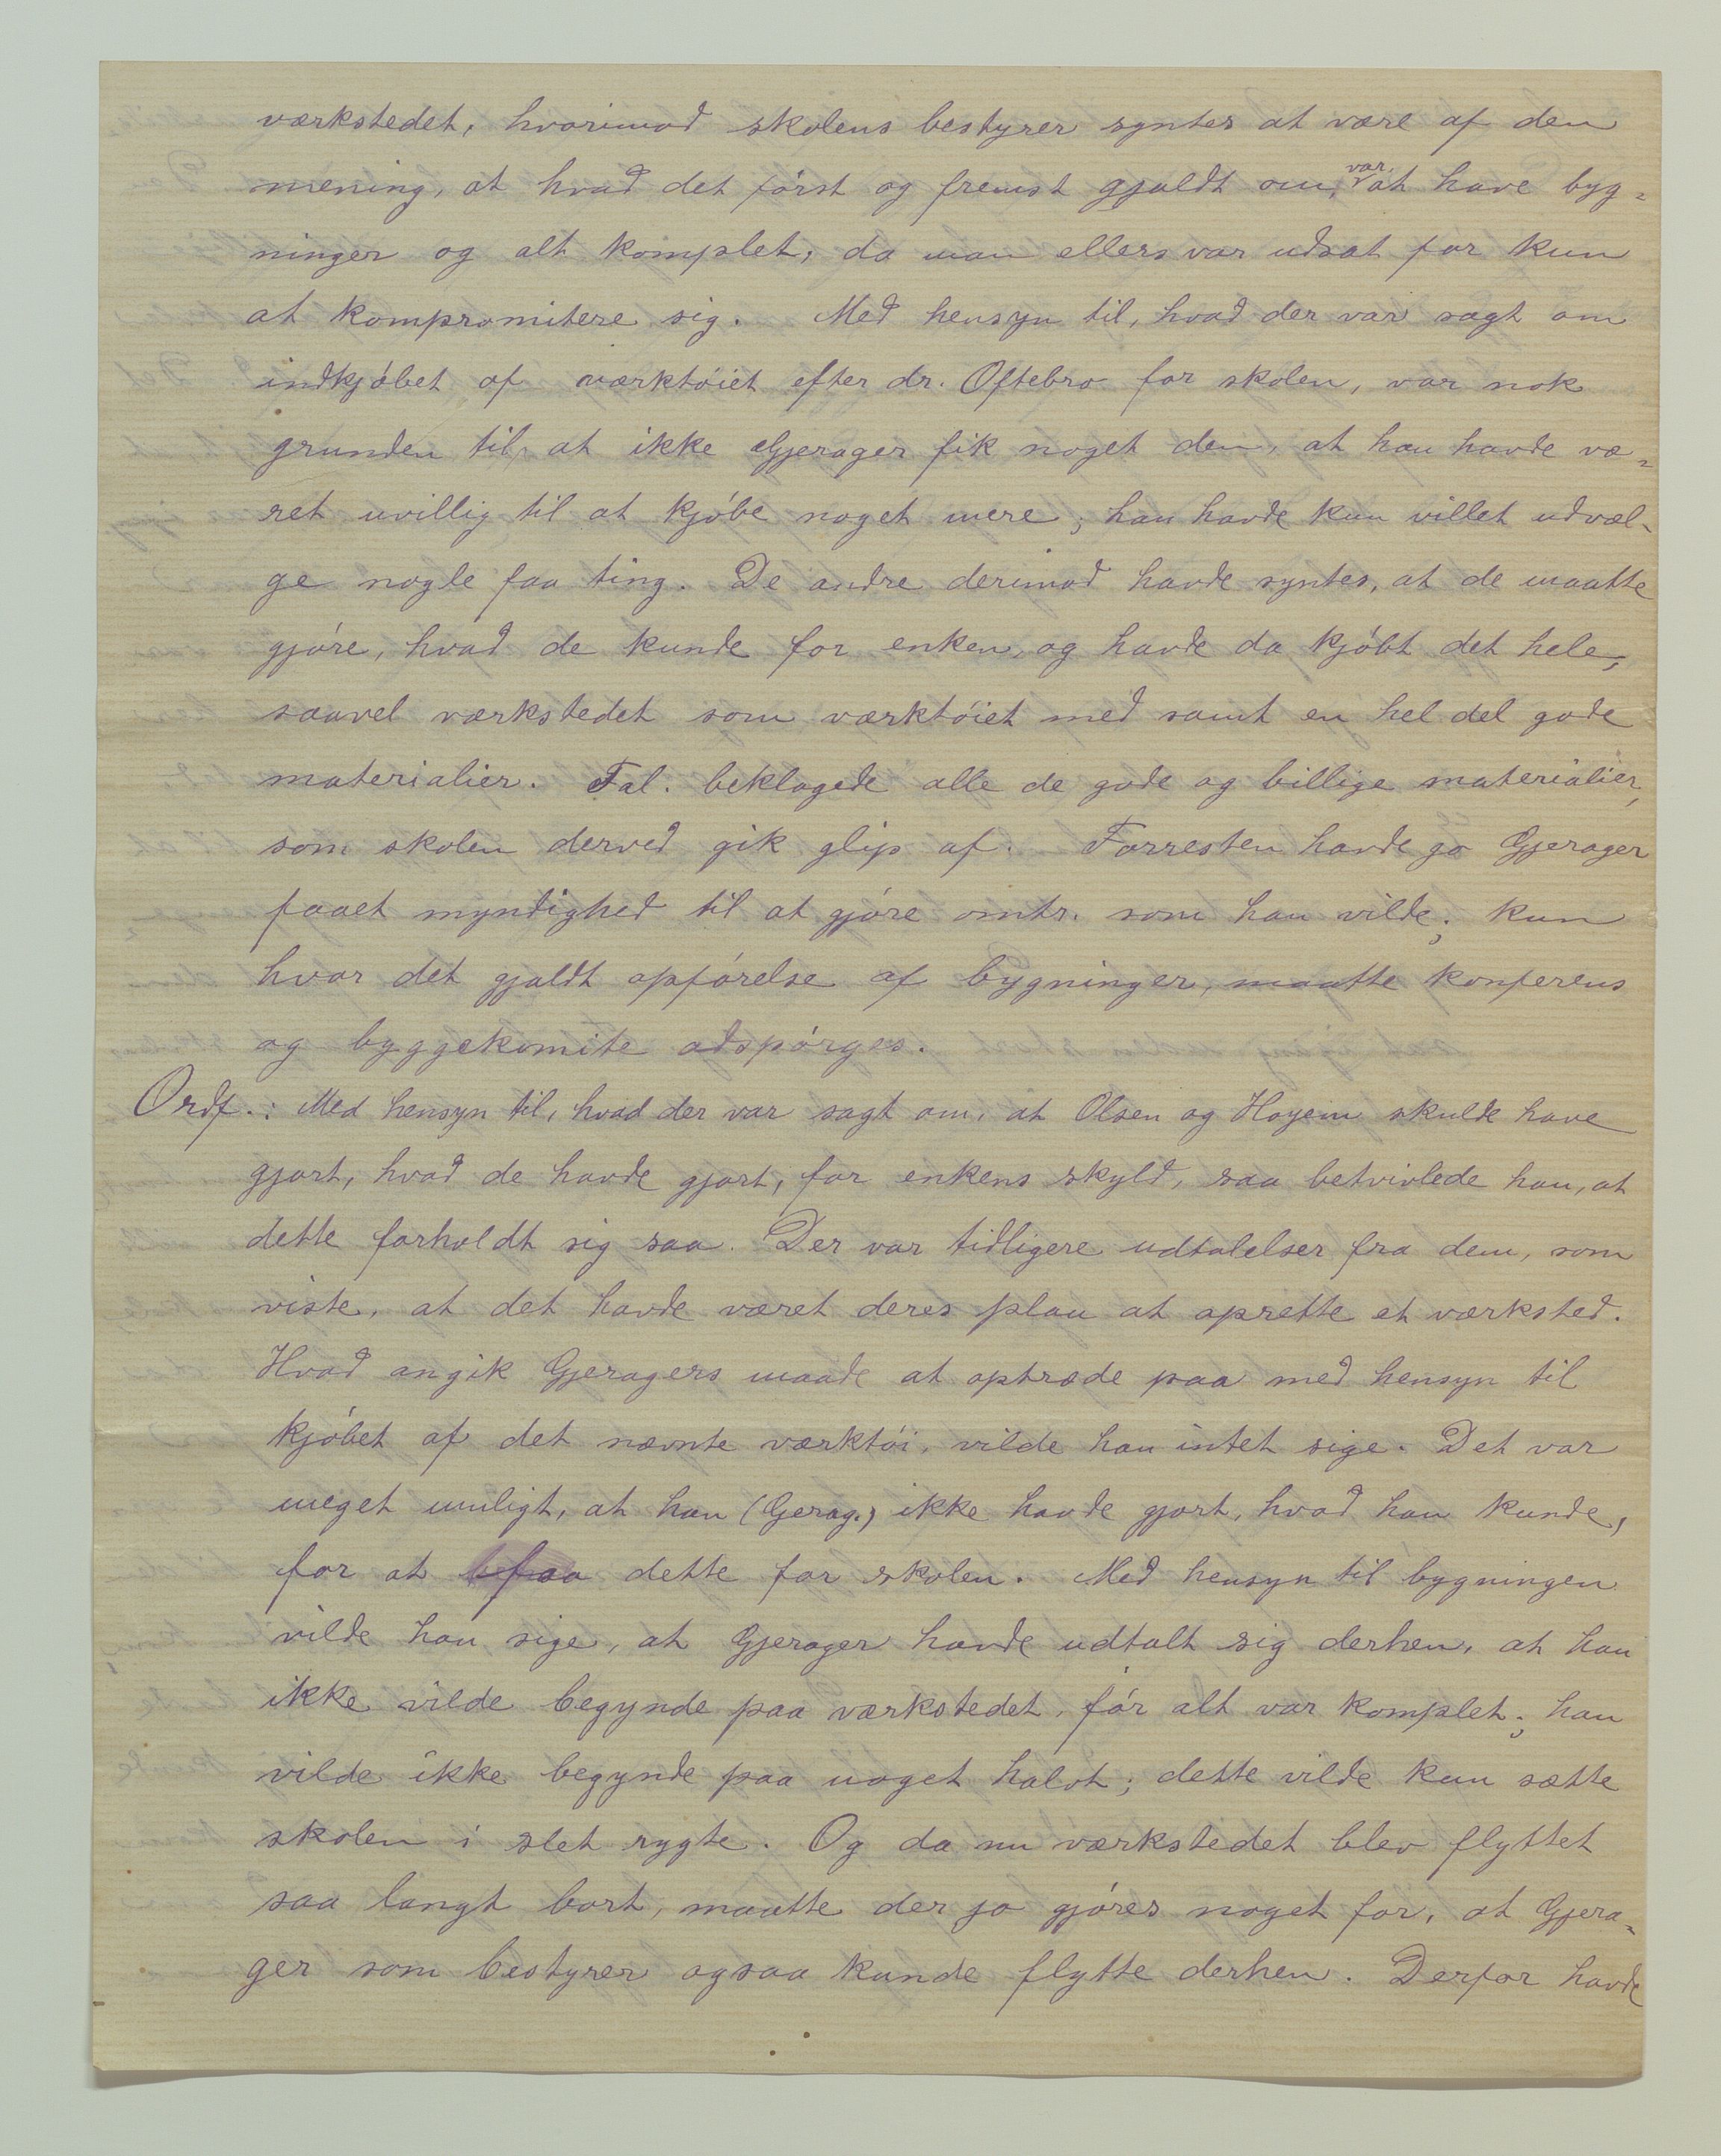 værkstedet, hvorimod skolens bestyrer syntes at være af den
mening, at hvad det först og fremst gjaldt om, var at have byg-
ninger og alt komplet, da man ellers var udsat for kun
at kompromitere sig. Med hensyn til, hvad der var sagt om
indkjöbet af værktöiet efter dr. Oftebro for skolen, var nok
grunden til, at ikke Gjerager fik noget den, at han havde væ-
ret uvillig til at kjöbe noget mere; han havde kun villet udvæl-
ge nogle faa ting. De andre derimod havde syntes, at de maatte
gjöre, hvad de kunde for enken, og havde da kjöbt det hele,
saavel værkstedet som værktöiet med samt en hel del gode
materialier. Tal. beklagede alle de gode og billige materialier,
som skolen derved gik glip af. Forresten havde jo Gjerager
faaet myndighed til at gjöre omtr. som han vilde; kun
hvor det gjaldt opförelse af bygninger, maatte konferens
og byggekomite adspörges.
Ordf.: Med hensyn til, hvad der var sagt om, at Olsen og Høyem skulde have
gjort, hvad de havde gjort, for enkens skyld, saa betvivlede han, at
dette forholdt sig saa. Der var tidligere udtalelser fra dem, som
viste, at det havde været deres plan at oprette et værksted.
Hvad angik Gjeragers maade at optræde paa med hensyn til
kjöbet af det nævnte værktöi, vilde han intet sige. Det var
meget muligt, at han (Gjerag.) ikke havde gjort, hvad han kunde,
for at faa dette for skolen. Med hensyn til bygningen
vilde han sige, at Gjerager havde udtalt sig derhen, at han
ikke vilde begynde paa værkstedet, för alt var komplet; han
vilde ikke begynde paa noget halvt; dette vilde kun sætte
skolen i slet rygte. Og da nu værkstedet blev flyttet
saa langt bort, maatte der jo gjöres noget for, at Gjera-
ger som bestyrer ogsaa kunde flytte derhen. Derfor havde